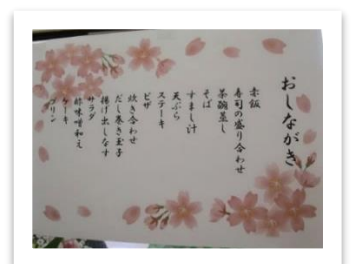 おしながき
赤飯
寿司の盛り合わせ
茶碗蒸し
そば
すまし汁
天ぷら
ステーキ
ピザ
炊き合わせ
だし巻き玉子
揚げ出しなす
サラダ
酢味噌和え
ケーキ
プリン